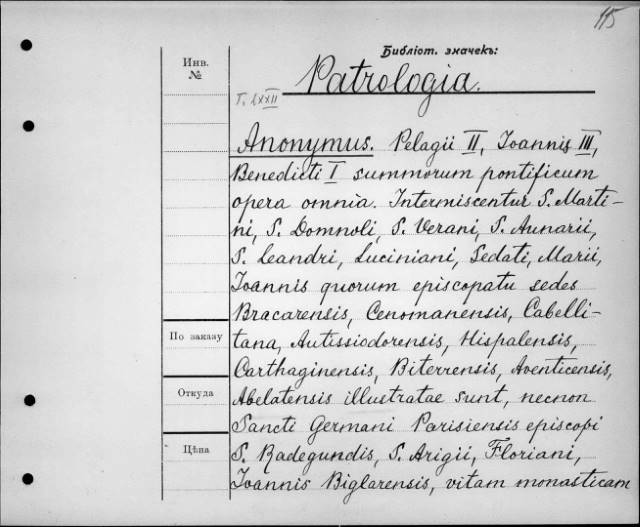 115
Библіот. значекъ:
Инв.
№
Patrologia.
T. LXXII
Anonymus. Pelagii II, Joannis III,
Benedicti I summorum pontificum
opera omnia. Intermiscentur S. Marti-
ni, S. Domnoli, S. Verani, S. Aunarii,
S. Leandri, Luciniani, Sedati, Marii,
Joannis quorum episcopatu sedes
Bracarensis, Cenomanensis, Cabelli-
tana, Autissiodorensis, Hispalensis,
По заказу
Carthaginensis, Biterrensis, Aventicensis,
Откуда
Abelatensis illustratae sunt, necnon
Sancti Germani Parisiensis episcopi
Цѣна
S. Radegundis, S. Arigii, Floriani,
Joannis Biglarensis, vitam monasticam